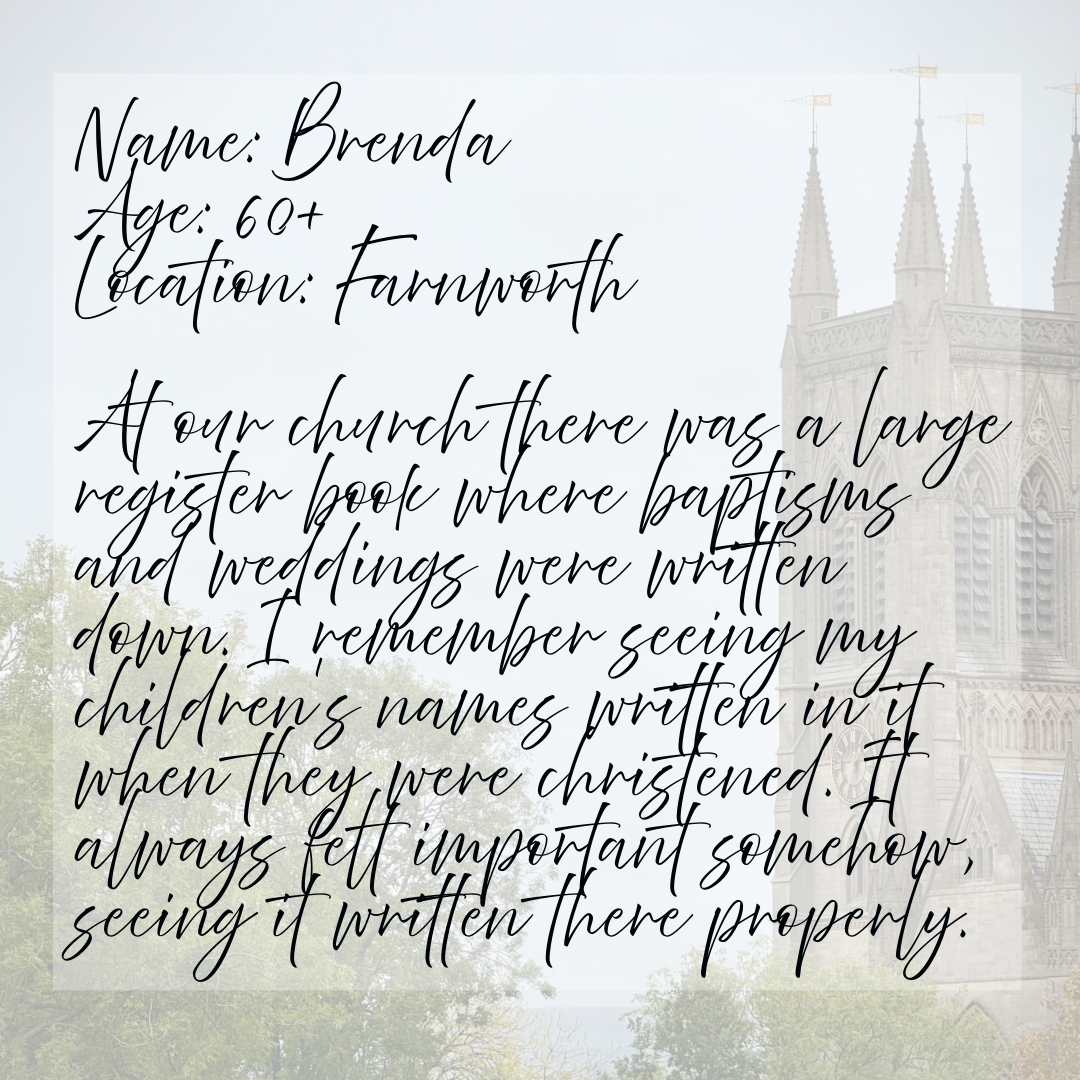 Name: Brenda
Age: 60+
Location: Farnworth
At our church there was a large
register book where baptisms
and weddings were written
down. I remember seeing my
children's names written in it
when they were christened. It
always felt important somehow,
seeing it written there properly.